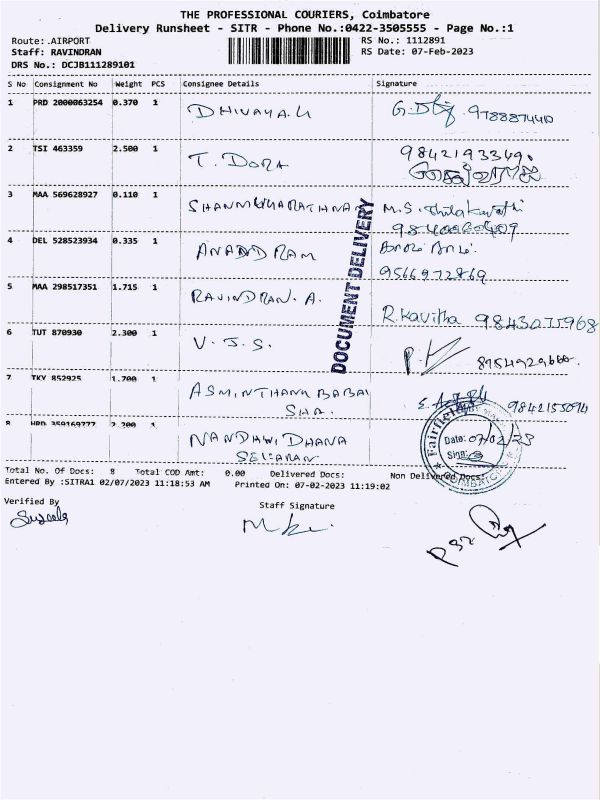 THE PROFESSIONAL COURIERS, Coimbatore
Delivery Runsheet - SITR - Phone No.:0422-3505555 - Page No.:1
Route: .AIRPORT RS No.: 1112891
Staff: RAVINDRAN RS Date: 07-Feb-2023
DRS No.: DCJB111289101
S No Consignment No Weight PCS Consignee Details Signature
1 PRD 2000063254 0.370 1 DHIVAYA.G 9788874410
2 TSI 463359 2.500 1 T. DORA 9842193349
3 MAA 569628927 0.110 1 M.S. Thilakavathi
4 DEL 528523934 0.335 1 ANAND RAM
9566972869
5 MAA 298517351 1.715 1 RAVINDRAN. A. R.Kavitha 9843075968
6 TUT 870930 2.300 1 V. J. S.
7 TKY 852925 1.700 1 9842155094
8 HRD 359169777 2.200 1 NANDHWI DHANA
SEKARAN
DOCUMENT DELIVERY
Fairfield
Date: 07/02/23
Sign:
COIMBATORE
Total No. Of Docs: 8 Total COD Amt: 0.00 Delivered Docs: Non Delivered Docs:
Entered By :SITRA1 02/07/2023 11:18:53 AM Printed On: 07-02-2023 11:19:02
Verified By Staff Signature